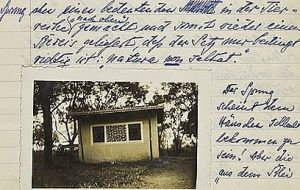 Sprung oder einen bedeutenden Schritt in der Tier-
(nach oben)
reihe gemacht und somit wieder einen
Beweis geliefert, daß der Satz nur bedingt
richtig ist: "natura non saltat".
Der Sprung
scheint dem
Häuschen
bekommen zu
sein. Aber die
aus dem